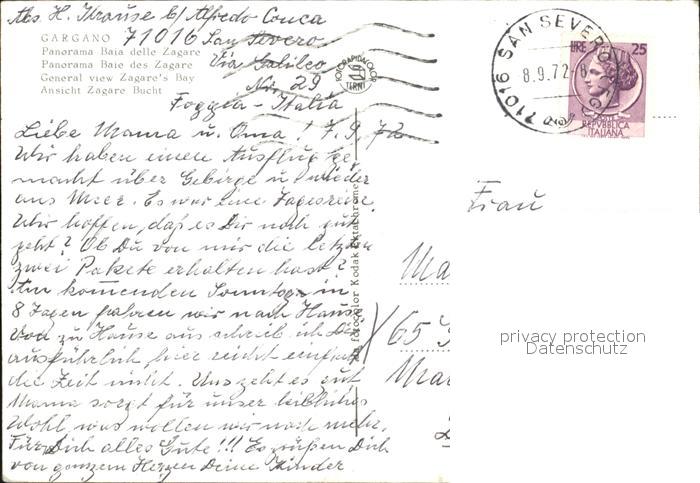 Abs H. Krause b/ Alfredo Couca
71016 San Severo
Via Galileo
Nr. 29
Foggia - Italia
GARGANO
Panorama Baia delle Zagare
Panorama Baie des Zagare
General view Zagare's Bay
Ansicht Zagare Bucht
Liebe Mama u. Oma! 7.9.72
Wir haben einen Ausflug ge
macht über Gebirge u. wieder
ans Meer. Es war eine Tagesreise.
Wir hoffen, daß es Dir noch gut
geht? Ob Du von mir die letzten
zwei Pakete erhalten hast?
Am kommenden Sonntag in
8 Tagen fahren wir nach Hause
Von zu Hause aus schreib ich Dir
ausführlich, hier reicht einfach
die Zeit nicht. Uns geht es gut
Mama sorgt für unser leibliches
Wohl, was wollen wir noch mehr.
Für Dich alles Gute!!! Es grüßen Dich
von ganzem Herzen Deine Kinder
FOTORAPIDACOLOR
TERNI
Fotocolor Kodak Ektachrome
71016 SAN SEVERO
8.9.72-8
LIRE 25
REPVBBLICA
ITALIANA
Frau
Ma
65
Mar
privacy protection
Datenschutz